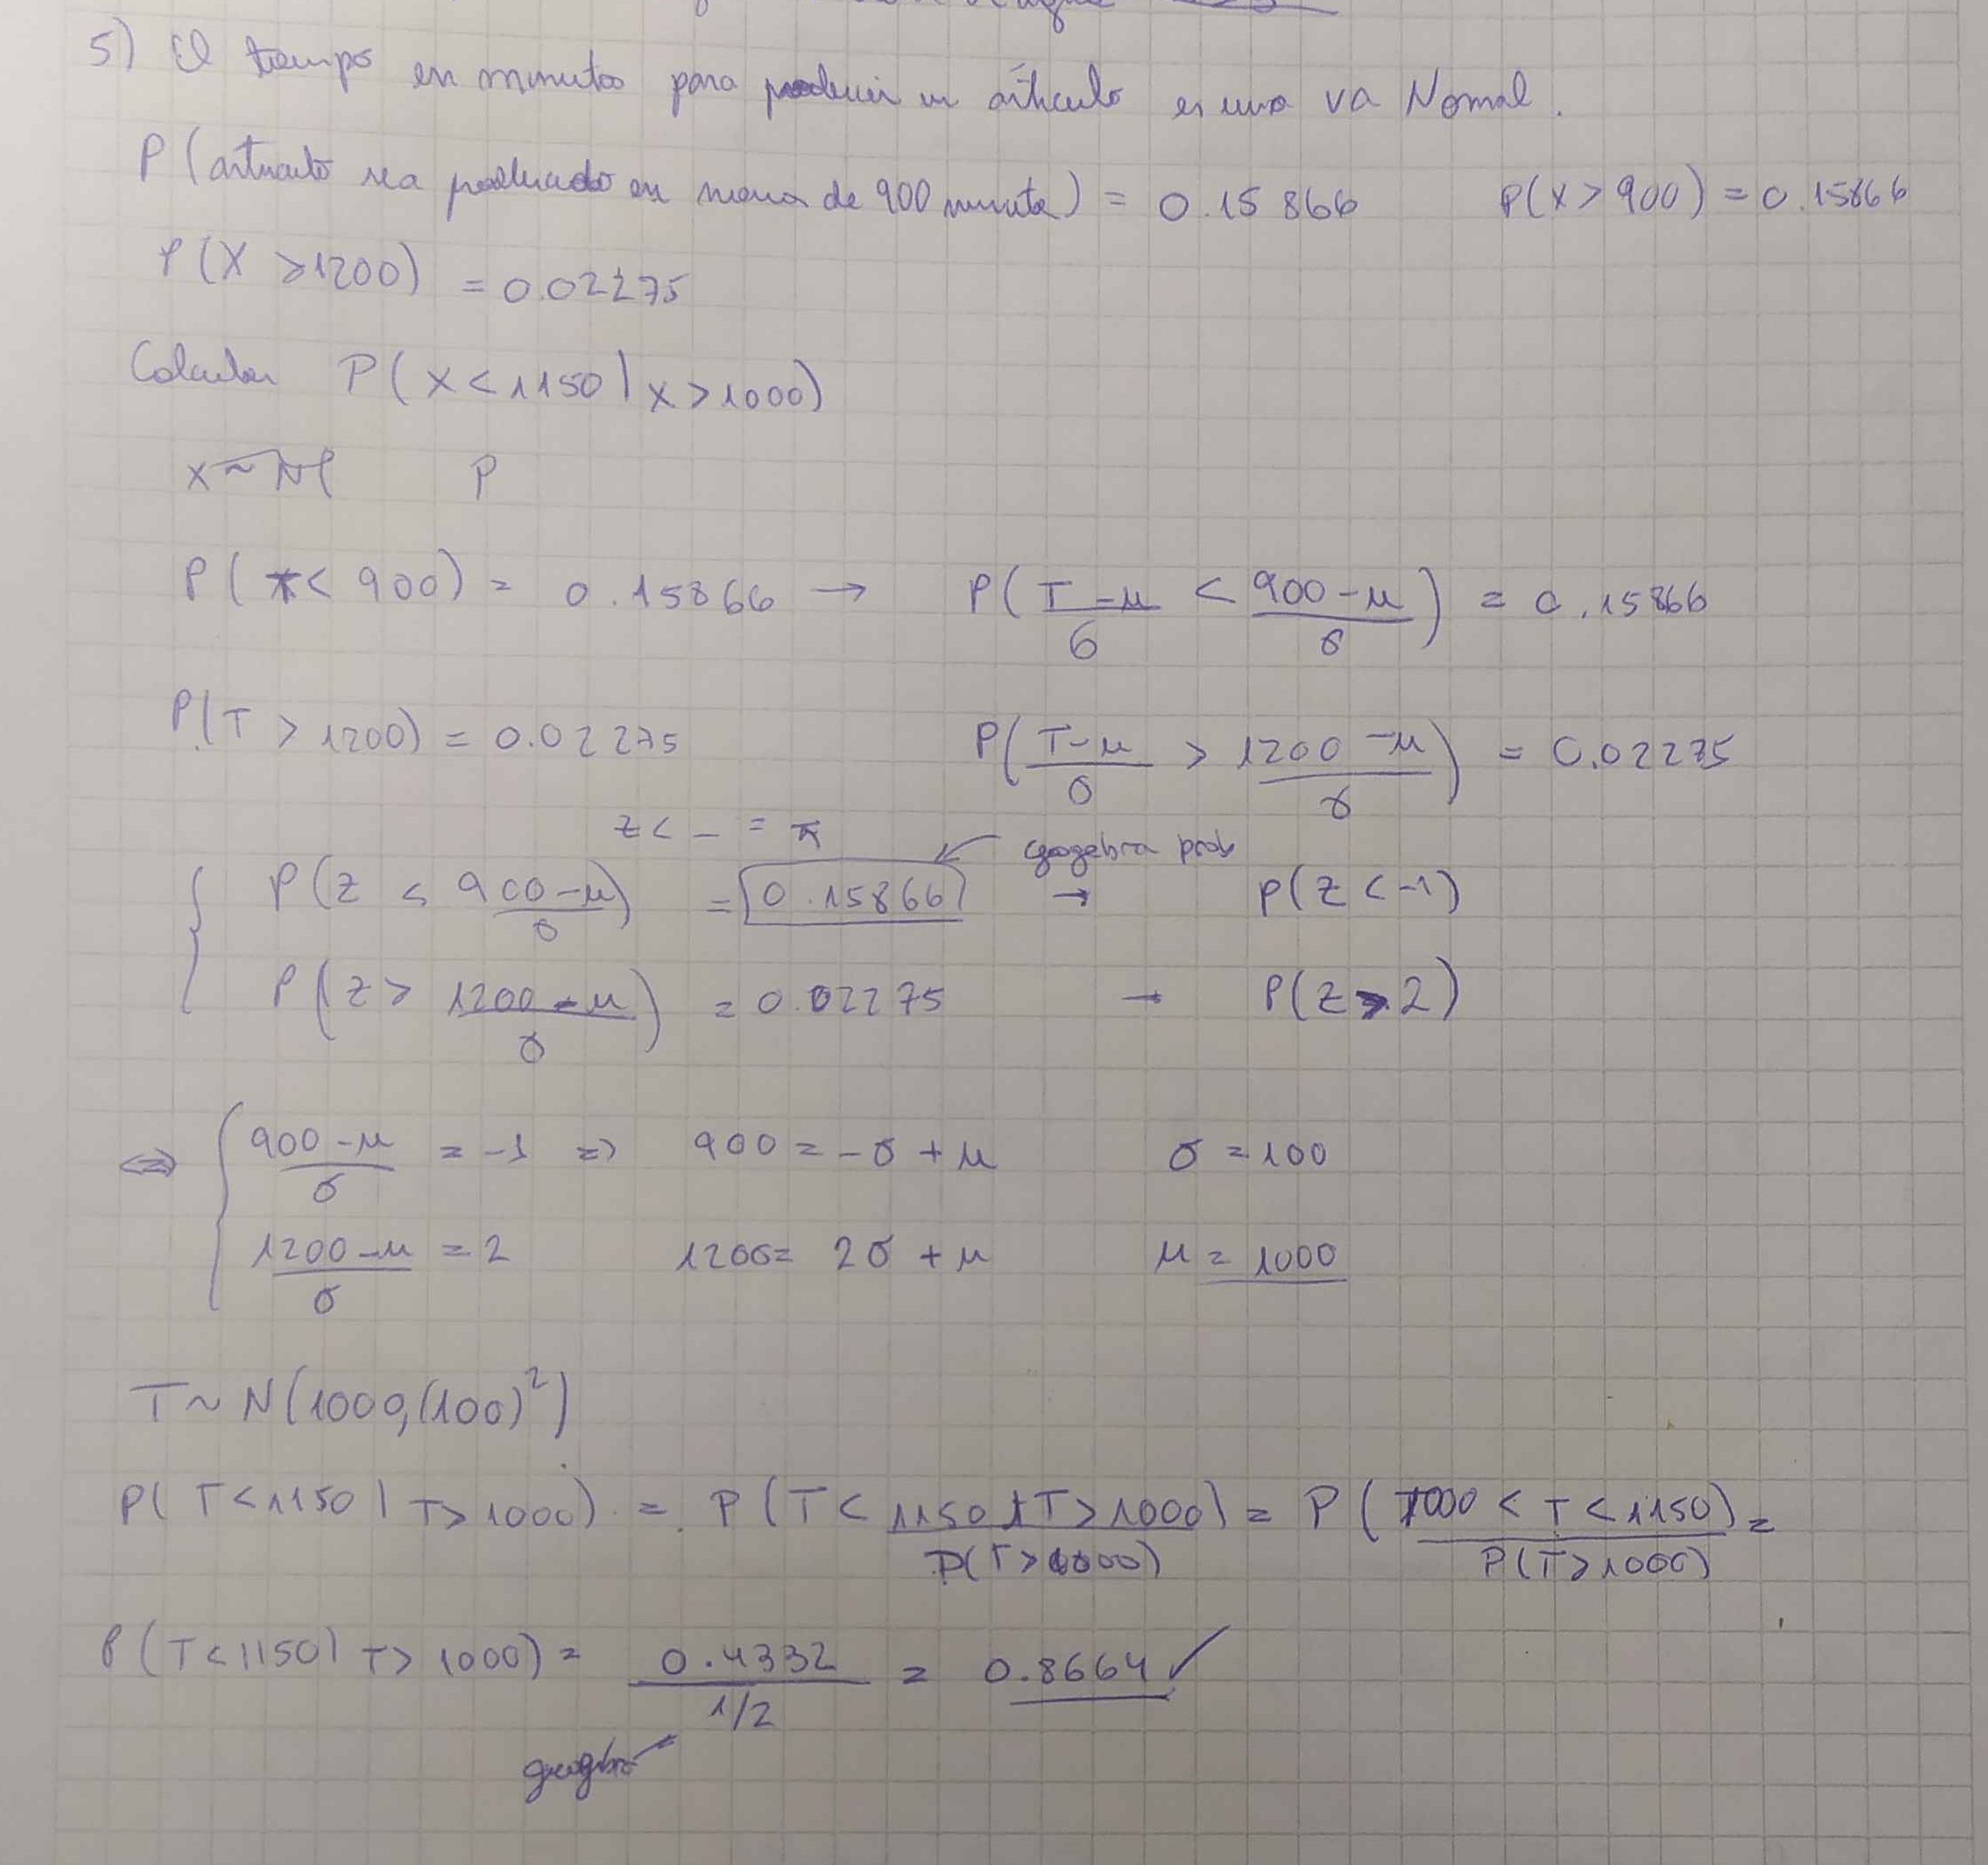 5) El tiempo en minutos para producir un artículo es una va Normal.
P(artículo sea producido en menos de 900 minutos) = 0.15866 P(X > 900) = 0.15866
P(X > 1200) = 0.02275
Calcular P(X < 1150 | X > 1000)
X ~ N( P
P(T < 900) = 0.15866 → P((T - μ)/σ < (900 - μ)/σ) = 0.15866
P(T > 1200) = 0.02275 P((T - μ)/σ > (1200 - μ)/σ) = 0.02275
z < _ =
geogebra prob
P(Z < (900 - μ)/σ) = 0.15866 → P(Z < -1)
P(Z > (1200 - μ)/σ) = 0.02275 → P(Z > 2)
⇔ (900 - μ)/σ = -1 => 900 = -σ + μ σ = 100
(1200 - μ)/σ = 2 1200 = 2σ + μ μ = 1000
T ~ N(1000, (100)²)
P(T < 1150 | T > 1000) = P(T < 1150 ∧ T > 1000)/P(T > 1000) = P(1000 < T < 1150)/P(T > 1000) =
P(T < 1150 | T > 1000) = 0.4332/1/2 = 0.8664 ✓
geogebra